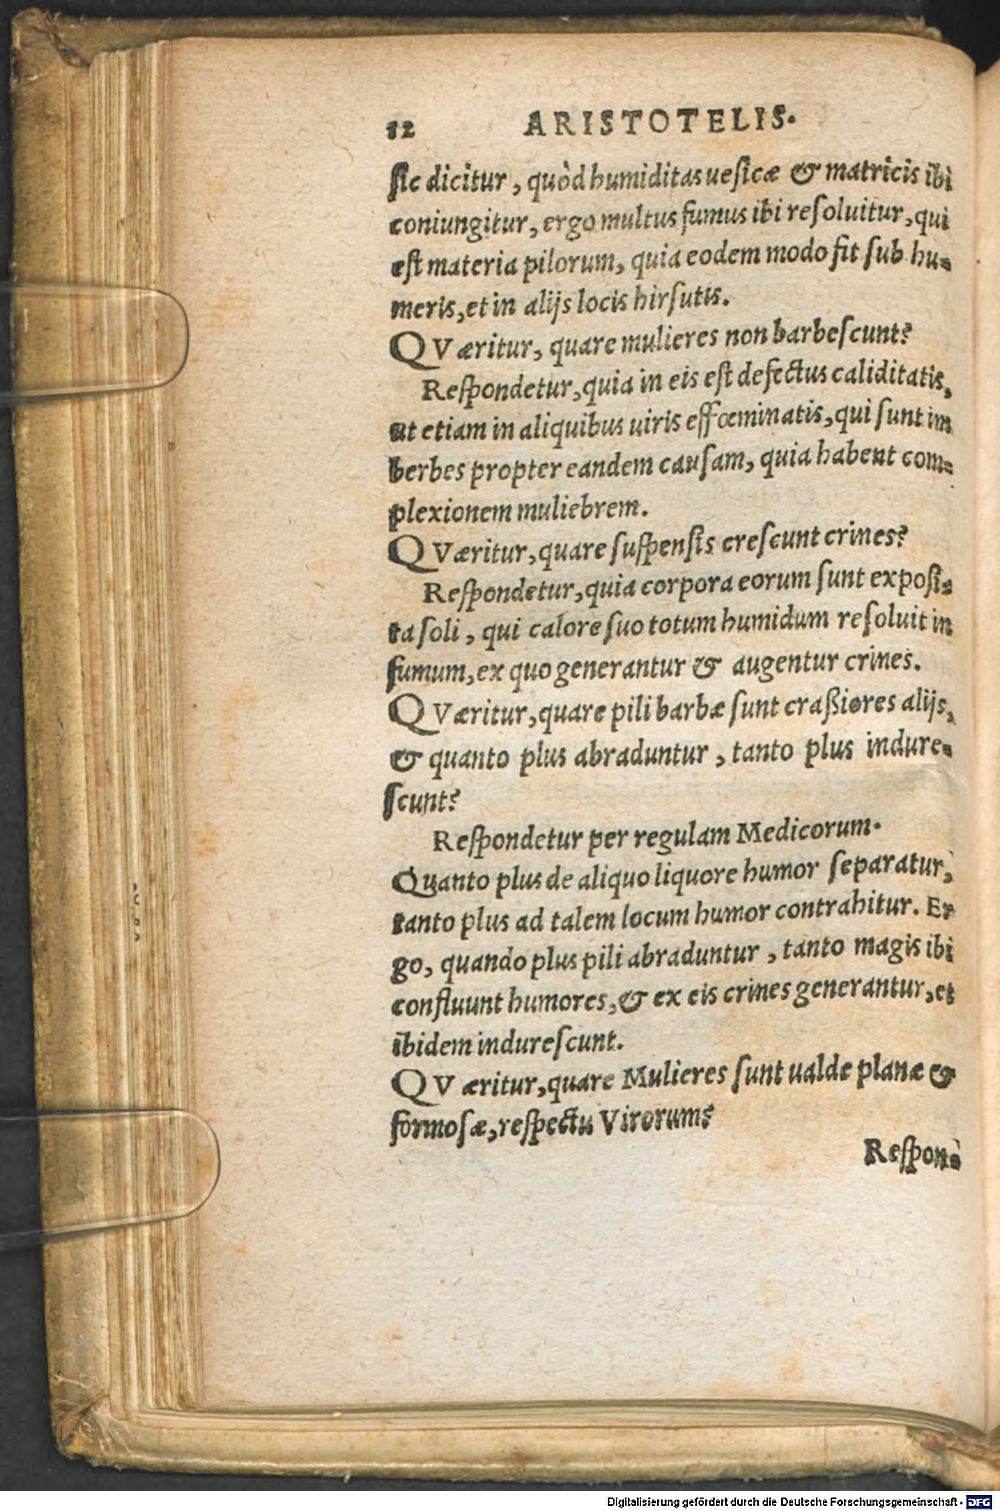 12 ARISTOTELIS.
sic dicitur, quòd humiditas uesicæ & matricis ibi
coniungitur, ergo multus fumus ibi resoluitur, qui
est materia pilorum, quia eodem modo fit sub hu-
meris, et in alijs locis hirsutis.
QVæritur, quare mulieres non barbescunt?
Respondetur, quia in eis est defectus caliditatis,
ut etiam in aliquibus uiris effœminatis, qui sunt im
berbes propter eandem causam, quia habent com-
plexionem muliebrem.
QVæritur, quare suspensis crescunt crines?
Respondetur, quia corpora eorum sunt exposi-
ta soli, qui calore suo totum humidum resoluit in
fumum, ex quo generantur & augentur crines.
QVæritur, quare pili barbæ sunt craßiores alijs,
& quanto plus abraduntur, tanto plus indure-
scunt?
Respondetur per regulam Medicorum.
Quanto plus de aliquo liquore humor separatur,
tanto plus ad talem locum humor contrahitur. Er
go, quando plus pili abraduntur, tanto magis ibi
confluunt humores, & ex eis crines generantur, et
ibidem indurescunt.
QVæritur, quare Mulieres sunt ualde planæ &
formosæ, respectu Virorum?
Respon-
Digitalisierung gefördert durch die Deutsche Forschungsgemeinschaft - DFG